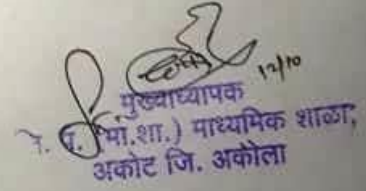 12/10
मुख्याध्यापक
(मा.शा.) माध्यमिक शाळा,
अकोट जि. अकोला